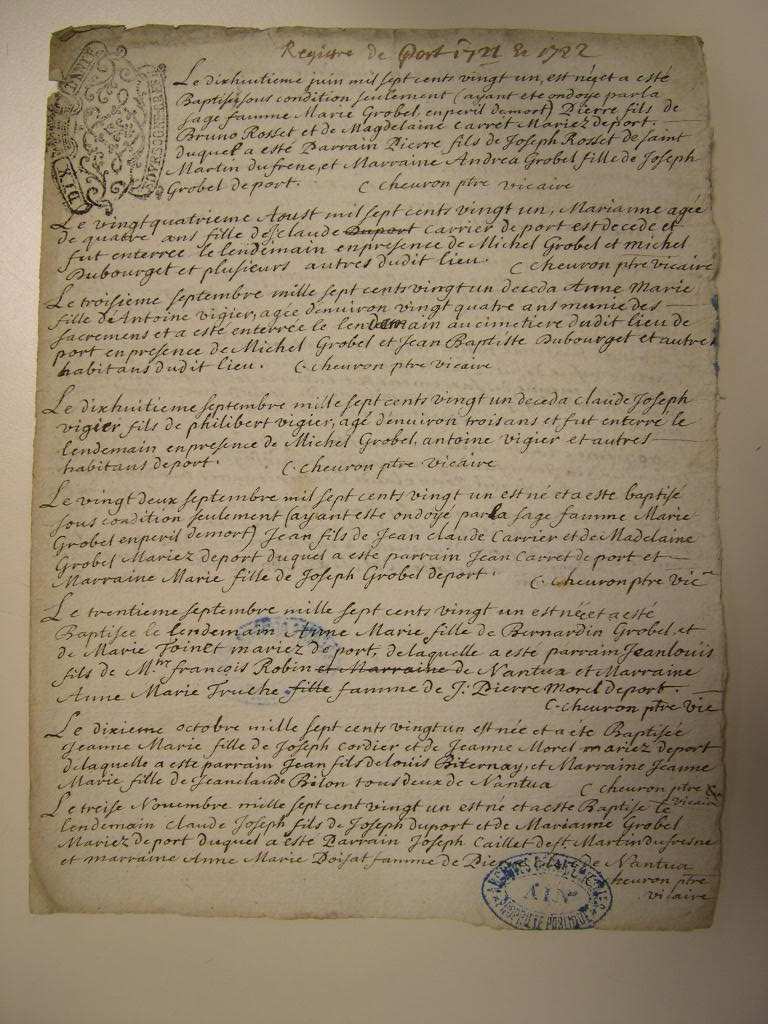 Registre de Port 1721 & 1722
Le dixhuitieme juin mil sept cents vingt un, est né et a esté
Baptisé sous condition seulement (ayant ete ondoyé par la
sage famme Marie Grobel, en peril de mort) Pierre fils de
Bruno Rosset et de Magdelaine Carret Mariez de port.
duquel a esté Parrain Pierre fils de Joseph Rosset de saint
Martin du frene, et Marraine Andrea Grobel fille de Joseph
Grobel de port. C cheuron ptre vicaire
Le vingt quatrieme Aoust mil sept cents vingt un, Marianne agée
de quatre ans fille de Claude Duport Carrier de port est decede et
fut enterrée le lendemain en presence de Michel Grobel et michel
Dubourget et plusieurs autres dudit lieu. C cheuron ptre vicaire
Le troisieme septembre mille sept cents vingt un deceda Anne Marie
fille de Antoine Vigier, agée denuiron vingt quatre ans munie des
sacremens et a esté enterrée le lendemain au cimetiere dudit lieu de
port en presence de Michel Grobel et Jean Baptiste Dubourget et autre
habitans dudit lieu. C. cheuron ptre vicaire
Le dixhuitieme septembre mille sept cents vingt un deceda claude Joseph
vigier fils de philibert vigier, agé denuiron trois ans et fut enterré le
lendemain en presence de Michel Grobel, antoine vigier et autres
habitans de port. C. cheuron ptre vicaire
Le vingt deux septembre mil sept cents vingt un est né et a esté baptisé
sous condition seulement (ayant este ondoyé par la sage famme Marie
Grobel en peril de mort) Jean fils de Jean claude Carrier et de Madelaine
Grobel Mariez de port duquel a esté parrain Jean Carret de port et
Marraine Marie fille de Joseph Grobel de port. C. cheuron ptre vic
Le trentieme septembre mille sept cents vingt un est née et a esté
Baptisée le lendemain Anne Marie fille de Bernardin Grobel et
de Marie Toinet mariez de port, de laquelle a esté parrain Jean louis
fils de Mtre françois Robin et Marraine de Nantua et Marraine
Anne Marie Truche fille famme de J: Pierre Morel de port.
C. cheuron ptre vic
Le dixieme octobre mille sept cents vingt un est née et a été Baptisée
Jeanne Marie fille de Joseph Cordier et de Jeanne Morel mariez de port
de laquelle a esté parrain Jean fils de louis Biternay, et Marraine Jeanne
Marie fille de Jean claude Belon tous deux de Nantua C cheuron ptre
vicaire
Le treise Novembre mille sept cent vingt un est né et a esté Baptisé le
lendemain claude Joseph fils de Joseph duport et de Marianne Grobel
Mariez de port duquel a esté Parrain Joseph Caillet de st Martin du fresne
et marraine Anne Marie Poisat famme de Pierre de Nantua
cheuron ptre
vicaire
AIN
PROPRIETE PUBLIQUE